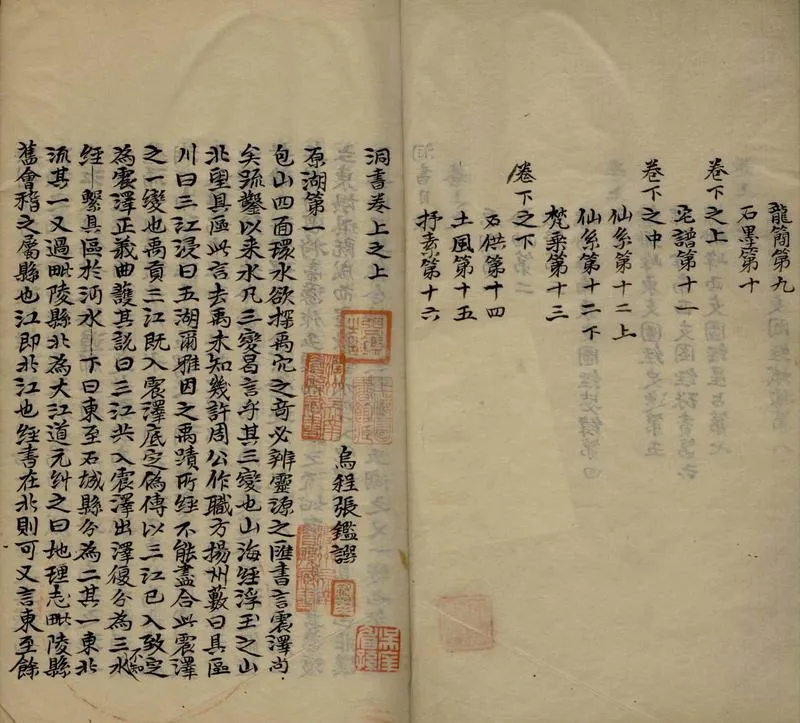 龍簡第九
石墨第十
卷下之上
宅譜第十一
卷下之中
仙系第十二上
仙系第十二下
梵乘第十三
卷下之下
石供第十四
土風第十五
抒素第十六
洞書卷上之上
烏程張鑑譔
原湖第一
包山四面環水欲探禹穴之奇必辨靈源之匯書言震澤尚
矣疏鑿以来水凡三變曷言乎其三變也山海經浮玉之山
北望具區此言去禹未知幾許周公作職方揚州藪曰具區
川曰三江浸曰五湖爾雅因之禹蹟所經不能盡合此震澤
之一變也禹貢三江既入震澤底定偽傳以三江已入致定
為震澤正義曲護其說曰三江共入震澤出澤復分為三水不知
經一繫具區於沔水一下曰東至石城縣分為二其一東北
流其一又過毗陵縣北為大江道元糾之曰地理志毗陵縣
舊會稽之屬縣也江即北江也經書在北則可又言東至餘